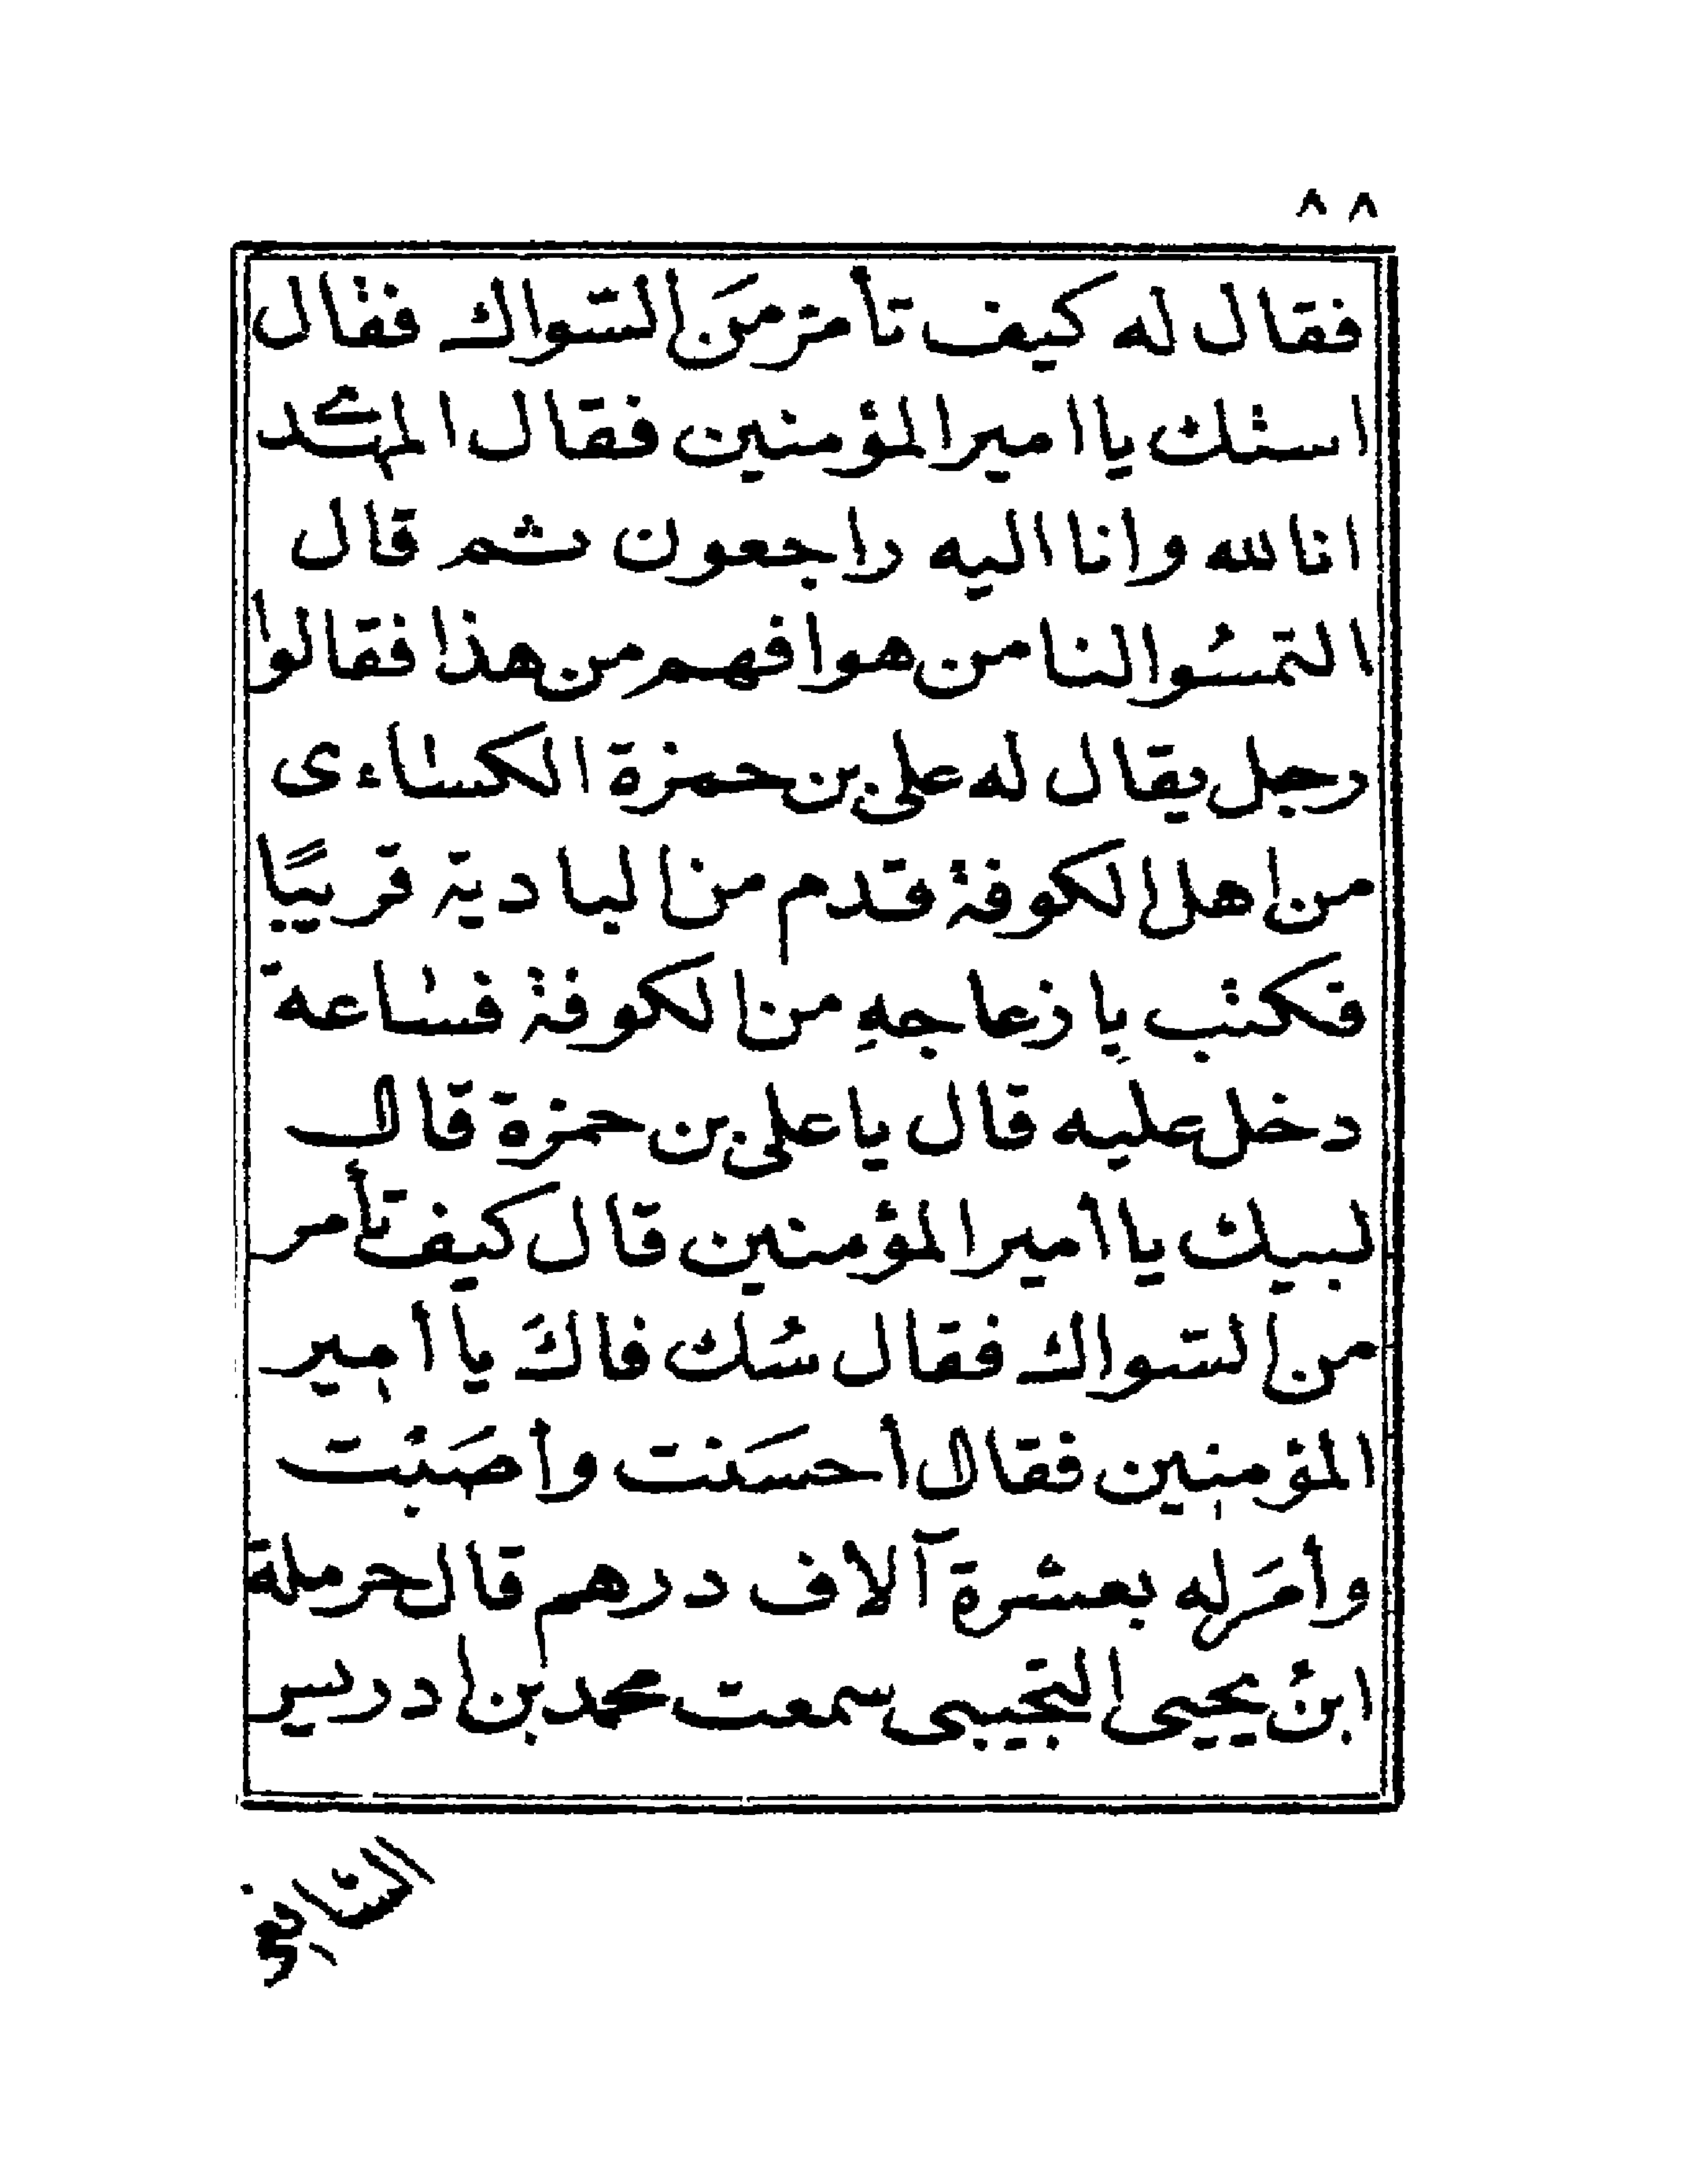 ٨٨
فقال له كيف تأمر منَ السواك فقال
استك يا امير المؤمنين فقال المهدى
انا لله وانا اليه راجعون ثم قال
التمسُوا لنا من هو افهم من هذا فقالوا
رجل يقال له على بن حمزة الكساءى
من اهل الكوفة قدم من البادية قريبًا
فكتب بِازعاجهِ من الكوفة فساعة
دخل عليه قال يا على بن حمزة قال
لبيك يا أمير المؤمنين قال كيف تأمر
من السواك فقال سُك فاكَ يا أمير
المؤمنين فقال أحسَنت وأصَبْت
وأمَر له بعشرة آلاف درهم قال حرملة
ابن يحيى التجيبى سمعت محمد بن ادريس
الشافعى